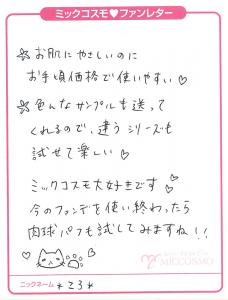 ミックコスモ♥ファンレター
☆ お肌にやさしいのに
お手頃価格で使いやすい♡
☆ 色んなサンプルも送って
くれるので、違うシリーズも
試せて楽しい♡
ミックコスモ大好きです♡
今のファンデを使い終わったら
肉球パフも試してみますね!!
MICCOSMO
ニックネーム *23*